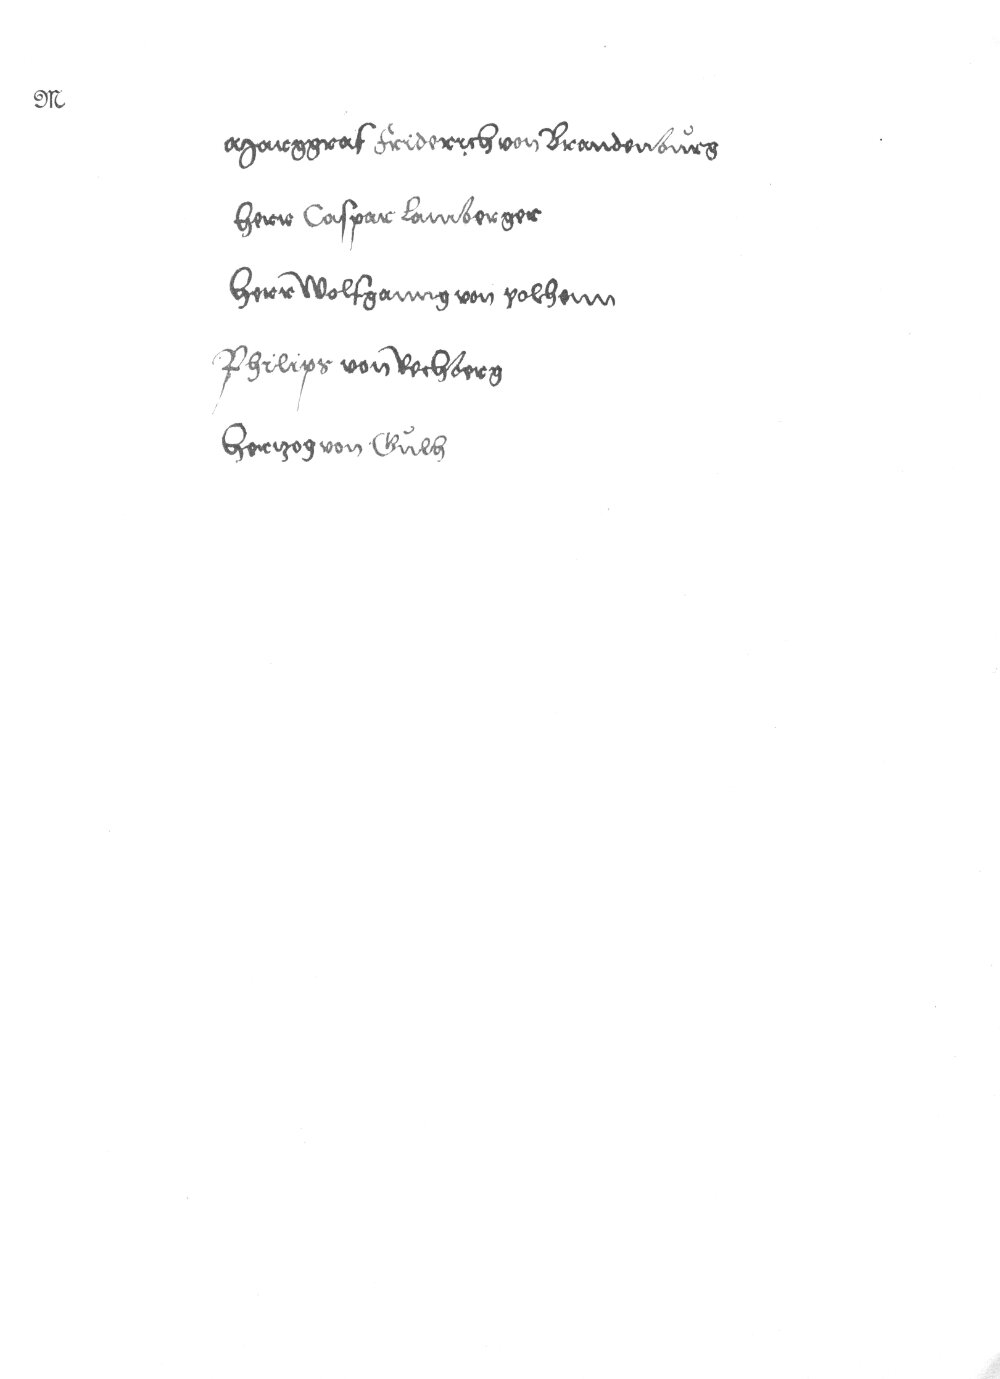 M
Marggraf Friderich von Brandenbůrg
Herr Caspar Lamberger
Herr Wolfganng von polheim
Philips von Rechberg
Hertzog von Gůlh